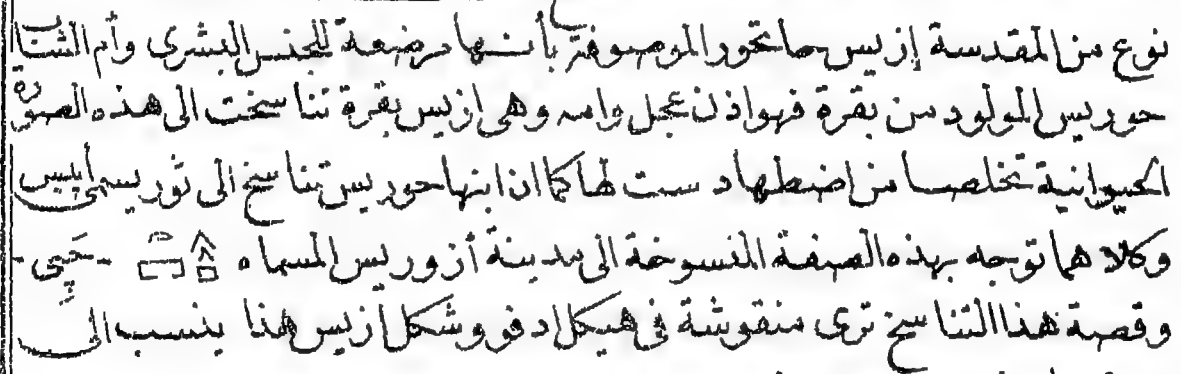 نوع من المقدسة إزيس حاتحور الموصوفة بأنها مرضعة للجنس البشرى وأم الشاب
حوريس المولود من بقرة فهو اذن عجل وامه وهى ازيس بقرة تناسخت الى هذه الصورة
الحيوانية تخلصا من اضطهاد ست لها كما ان ابنها حوريس تناسخ الى ثور يسمى أپيس
وكلاهما توجه بهذه الصفة المنسوخة الى مدينة أزوريس المسماه - حَپِى -
وقصة هذا التناسخ ترى منقوشة فى هيكل ادفو وشكل ازيس هذا ينسب الى